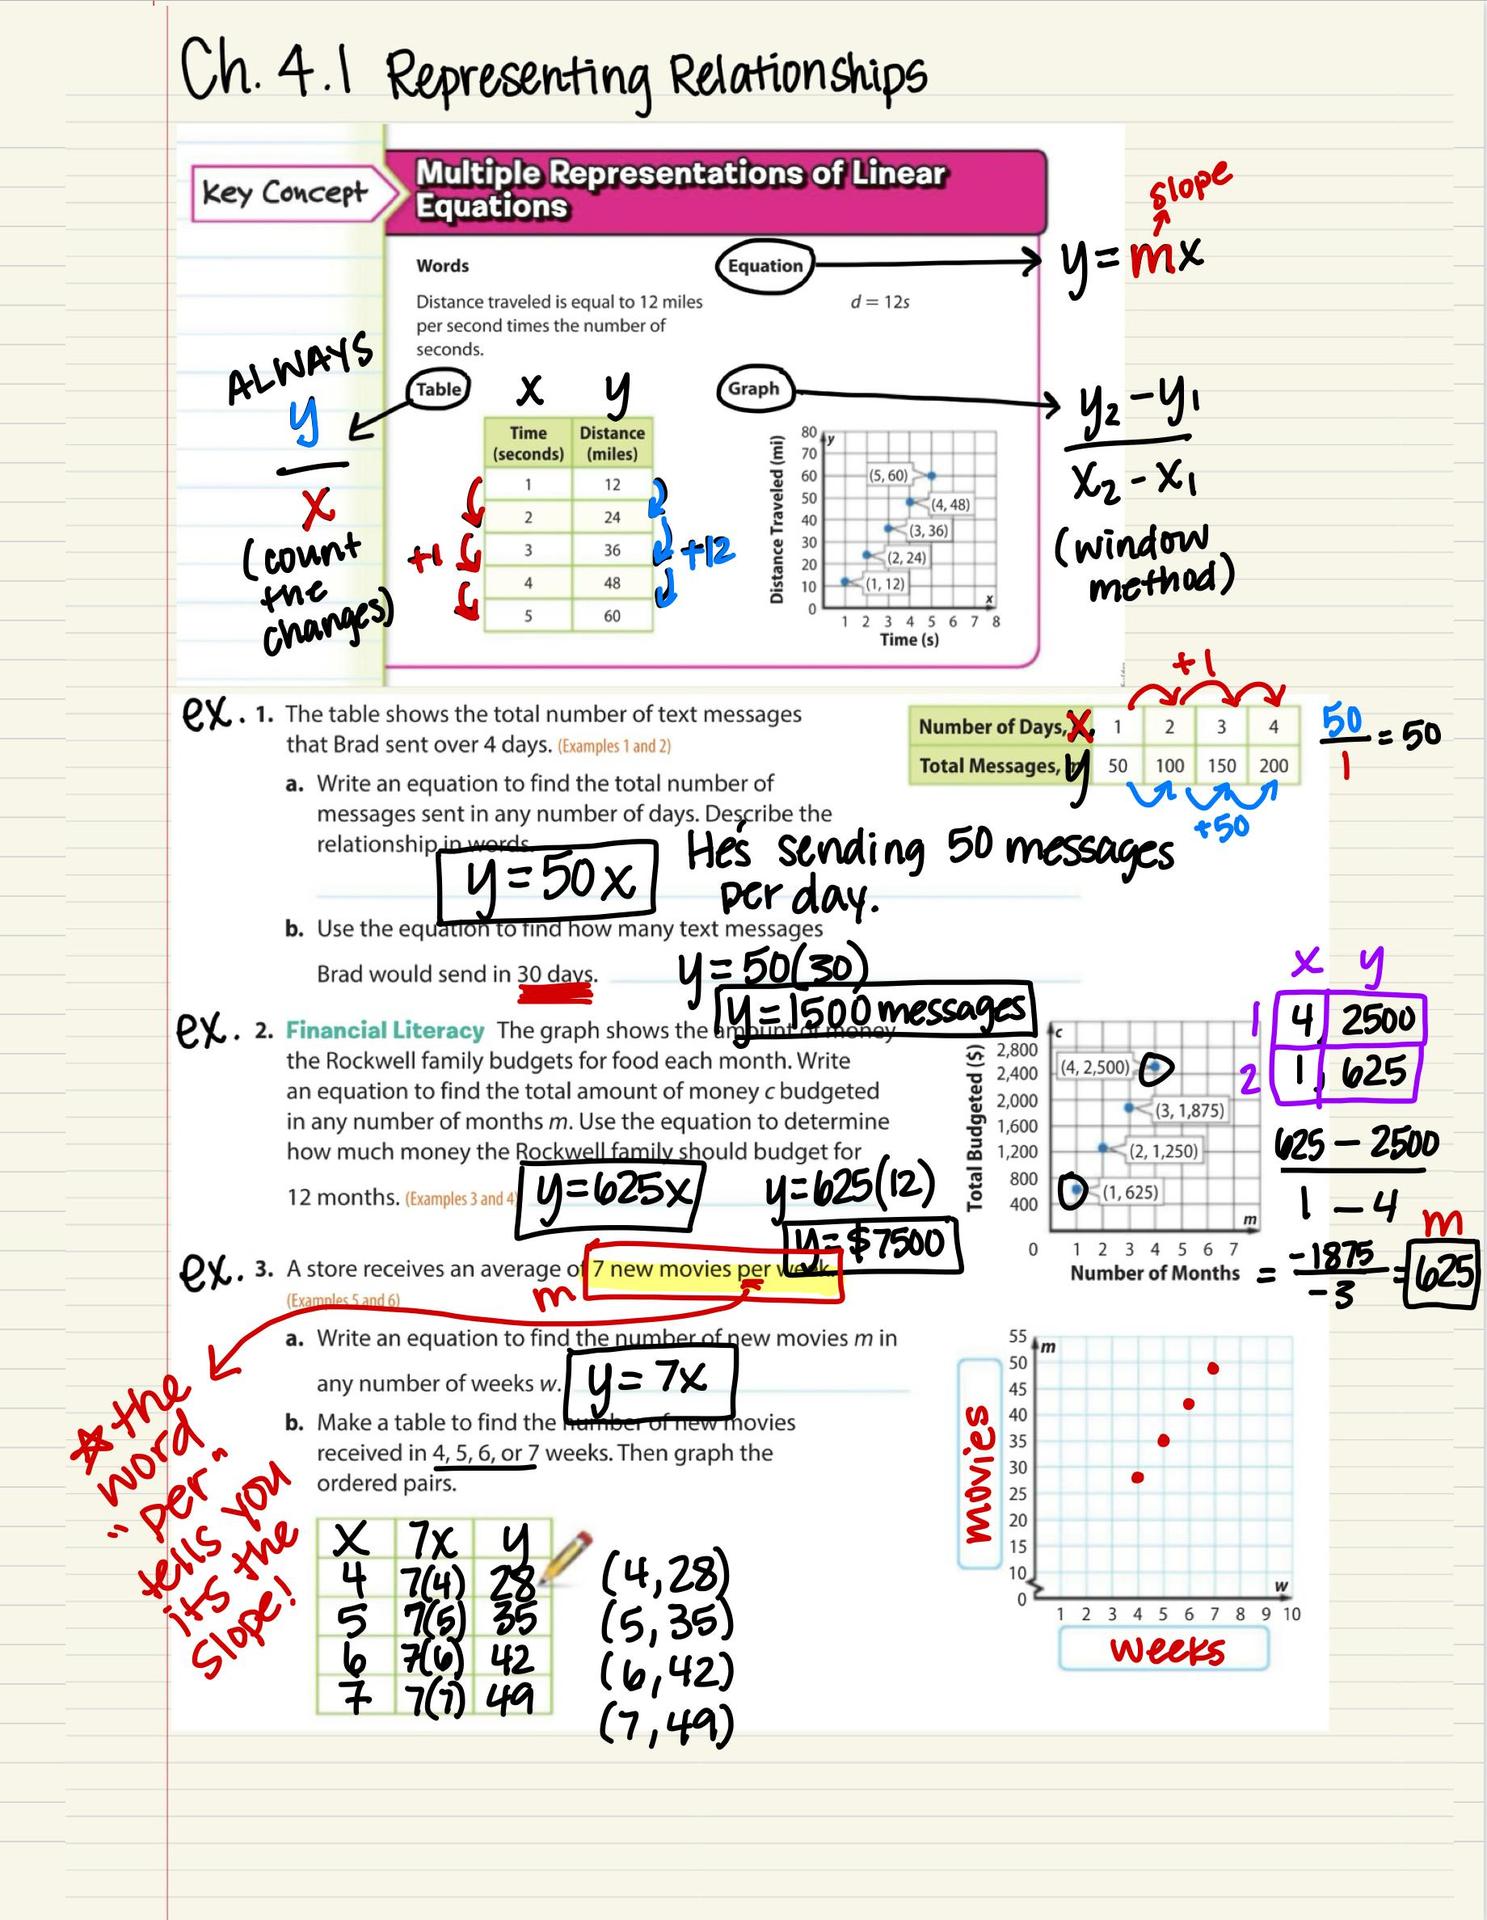 Ch. 4.1 Representing Relationships
Key Concept
Multiple Representations of Linear
Equations
slope
y = mx
Words
Distance traveled is equal to 12 miles
per second times the number of
seconds.
Equation
d = 12s
ALWAYS
y
x
(count
the
changes)
Table
x y
Time (seconds) Distance (miles)
1 12
2 24
3 36
4 48
5 60
+1
+12
Graph
y2 - y1
x2 - x1
(window
method)
Distance Traveled (mi)
80
70
60
50
40
30
20
10
0
y
(5, 60)
(4, 48)
(3, 36)
(2, 24)
(1, 12)
x
1 2 3 4 5 6 7 8
Time (s)
ex. 1. The table shows the total number of text messages
that Brad sent over 4 days. (Examples 1 and 2)
+1
Number of Days, x 1 2 3 4
Total Messages, y 50 100 150 200
+50
50
1
= 50
a. Write an equation to find the total number of
messages sent in any number of days. Describe the
relationship in words.
y = 50x
He's sending 50 messages
per day.
b. Use the equation to find how many text messages
Brad would send in 30 days.
y = 50(30)
y = 1500 messages
ex. 2. Financial Literacy The graph shows the amount of money
the Rockwell family budgets for food each month. Write
an equation to find the total amount of money c budgeted
in any number of months m. Use the equation to determine
how much money the Rockwell family should budget for
12 months. (Examples 3 and 4)
y = 625x
y = 625(12)
y = $7500
Total Budgeted ($)
c
2,800
2,400
2,000
1,600
1,200
800
400
0
(4, 2,500)
(3, 1,875)
(2, 1,250)
(1, 625)
m
1 2 3 4 5 6 7
Number of Months
x y
1 4, 2500
2 1, 625
625 - 2500
1 - 4
= -1875
-3
= 625
m
ex. 3. A store receives an average of 7 new movies per week.
(Examples 5 and 6)
m
a. Write an equation to find the number of new movies m in
any number of weeks w.
y = 7x
b. Make a table to find the number of new movies
received in 4, 5, 6, or 7 weeks. Then graph the
ordered pairs.
the
word
"per"
tells you
its the
slope!
x 7x y
4 7(4) 28
5 7(5) 35
6 7(6) 42
7 7(7) 49
(4, 28)
(5, 35)
(6, 42)
(7, 49)
movies
55
50
45
40
35
30
25
20
15
10
0
m
w
1 2 3 4 5 6 7 8 9 10
weeks